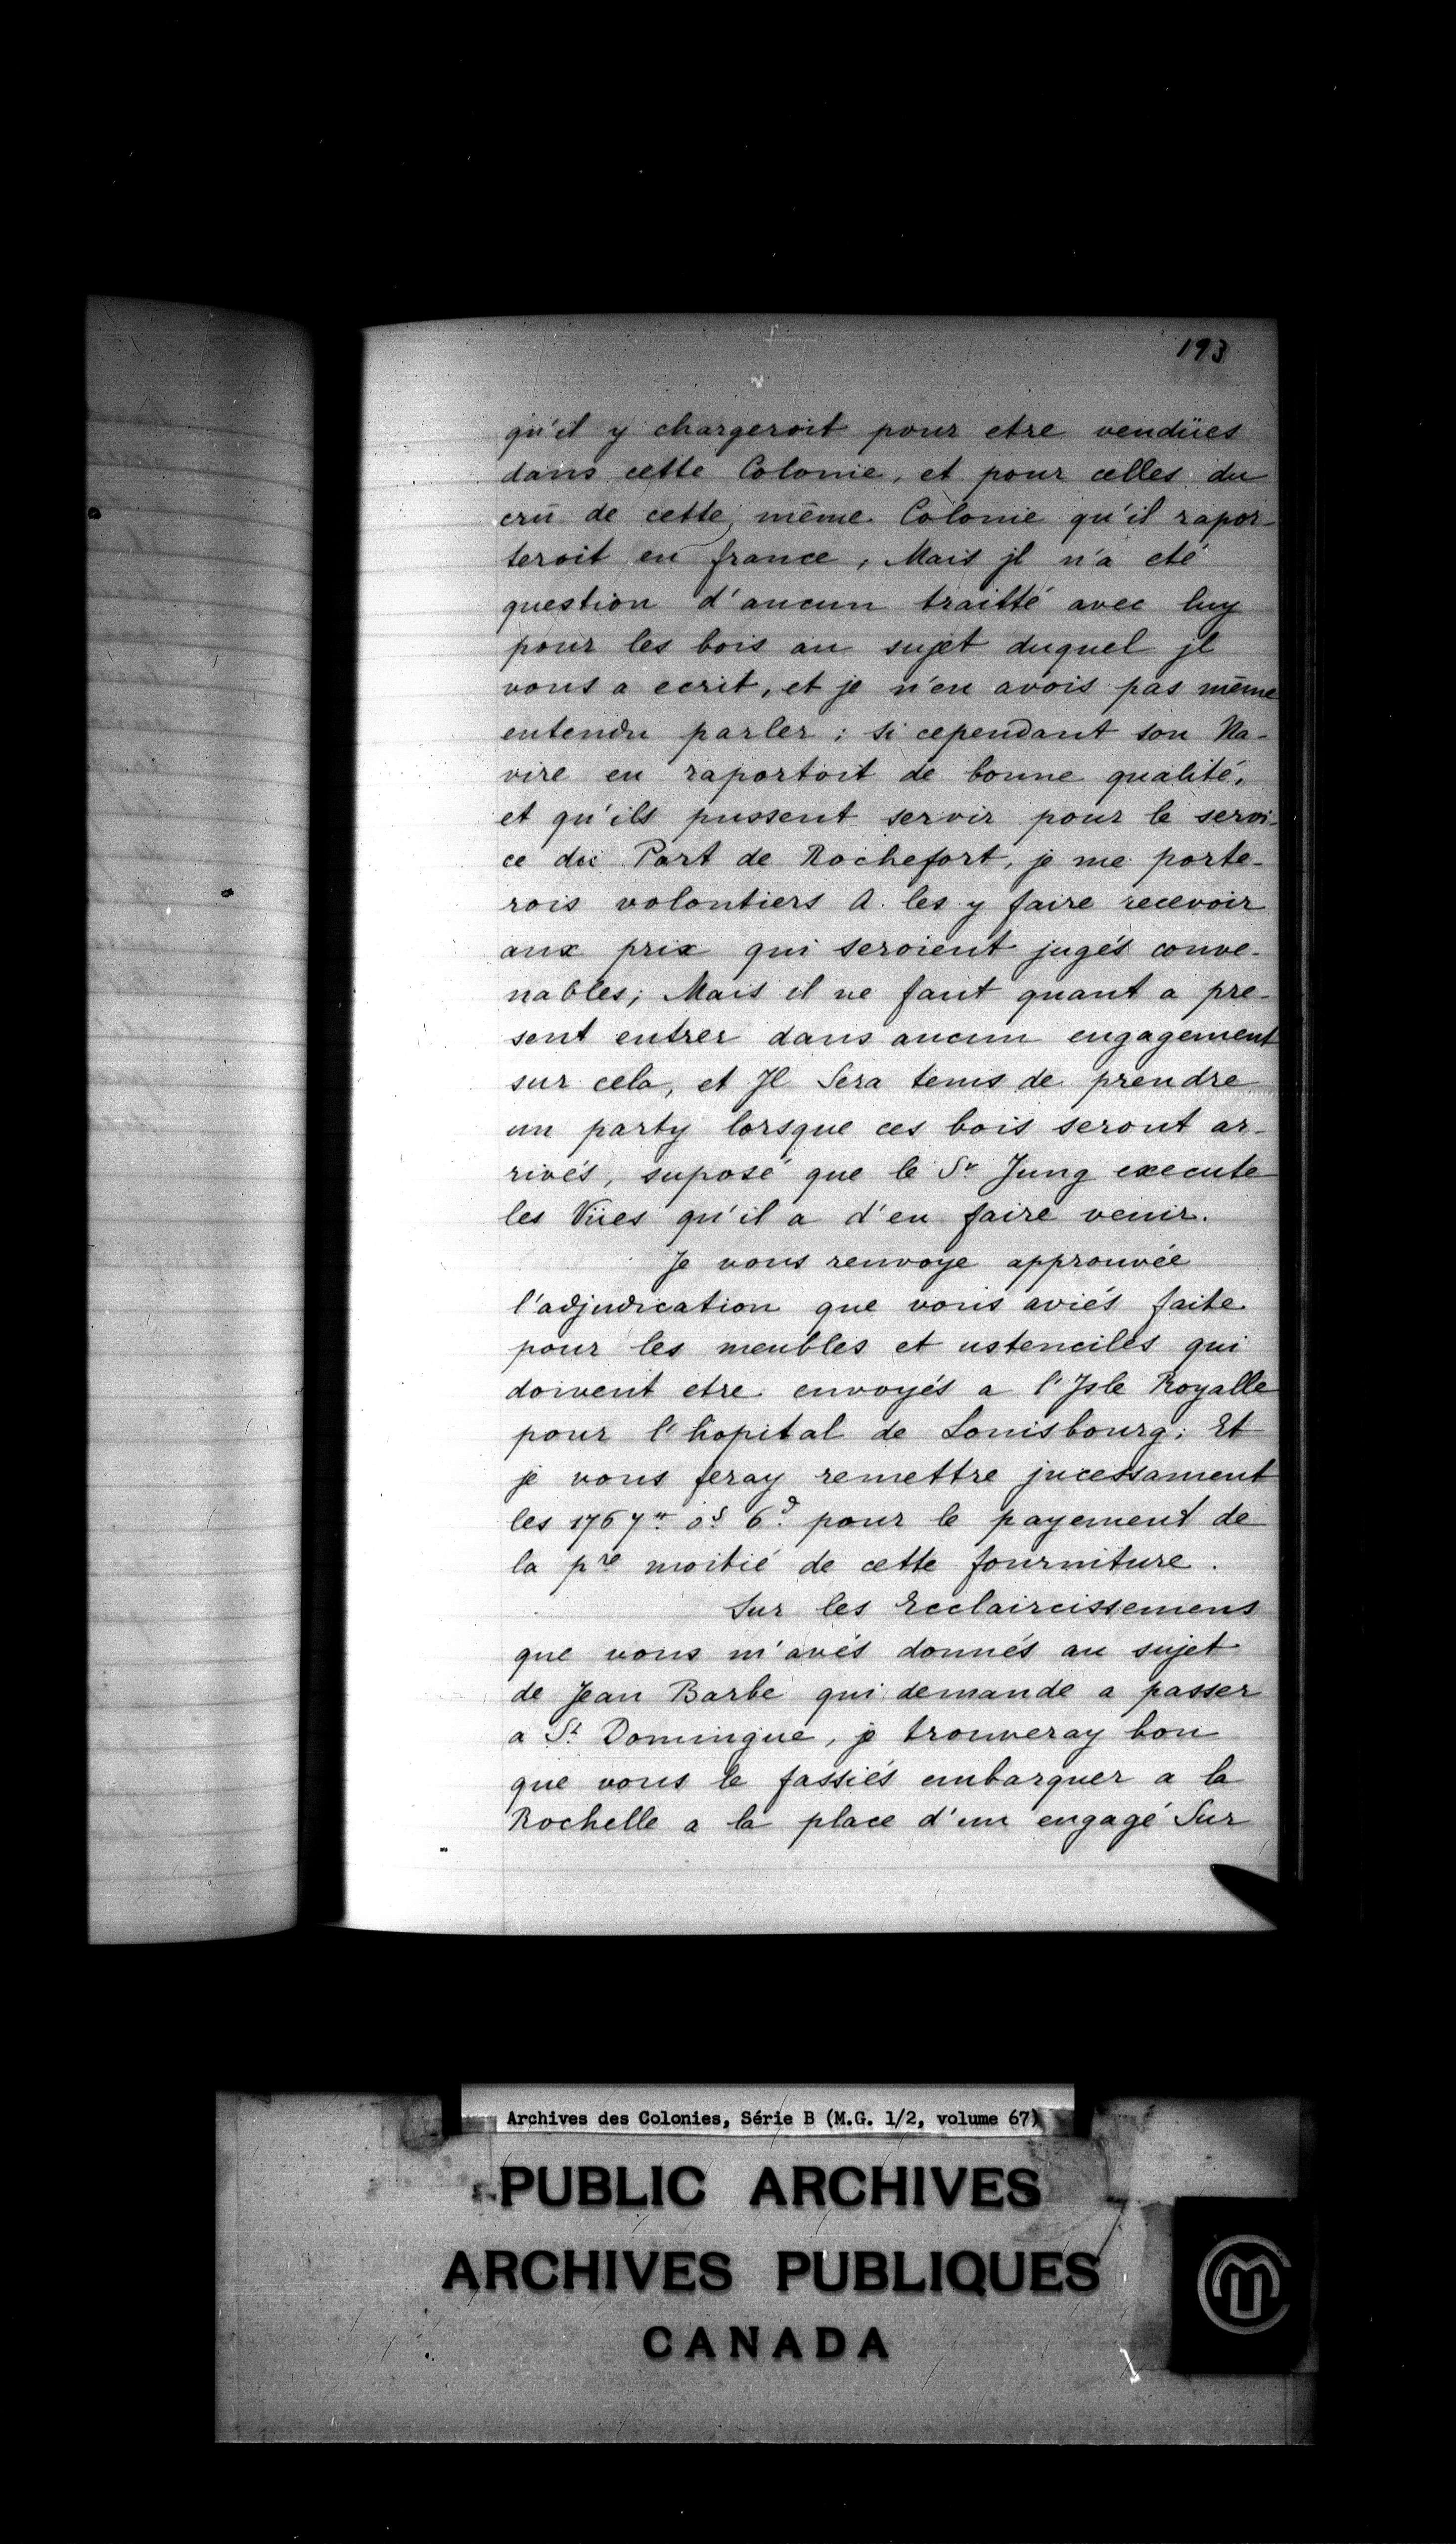 193
qu'il y chargeroit pour etre vendües
dans cette Colonie, et pour celles du
crû de cette même Colonie qu'il rapor-
teroit en france, Mais jl n'a eté
question d'aucun traitté avec luy
pour les bois au sujet duquel jl
vous a ecrit, et je n'en avois pas même
entendu parler; si cependant son Na-
vire en raportoit de bonne qualité,
et qu'ils pussent servir pour le servi-
ce du Port de Rochefort, je me porte-
rois volontiers A les y faire recevoir
aux prix qui seroient jugés conve-
nables; Mais il ne faut quant a pre-
sent entrer dans aucun engagement
sur cela, et Jl Sera tems de prendre
un party lorsque ces bois seront ar-
rivés, suposé que le Sr Jung execute
les Vües qu'il a d'en faire venir.
Je vous renvoye approuvée
l'adjudication que vous aviés faite
pour les meubles et ustenciles qui
doivent etre envoyés a l'Jsle Royalle
pour l'hopital de Louisbourg; Et
je vous feray remettre jncessament
les 1767 tt 0 s 6 d pour le payement de
la pre moitié de cette fourniture.
Sur les Ecclaircissemens
que vous m'avés donnés au sujet
de Jean Barbe qui demande a passer
a St Domingue, je trouveray bon
que vous le fassiés embarquer a la
Rochelle a la place d'un engagé Sur
Archives des Colonies, Série B (M.G. 1/2, volume 67)
PUBLIC ARCHIVES
ARCHIVES PUBLIQUES
CANADA